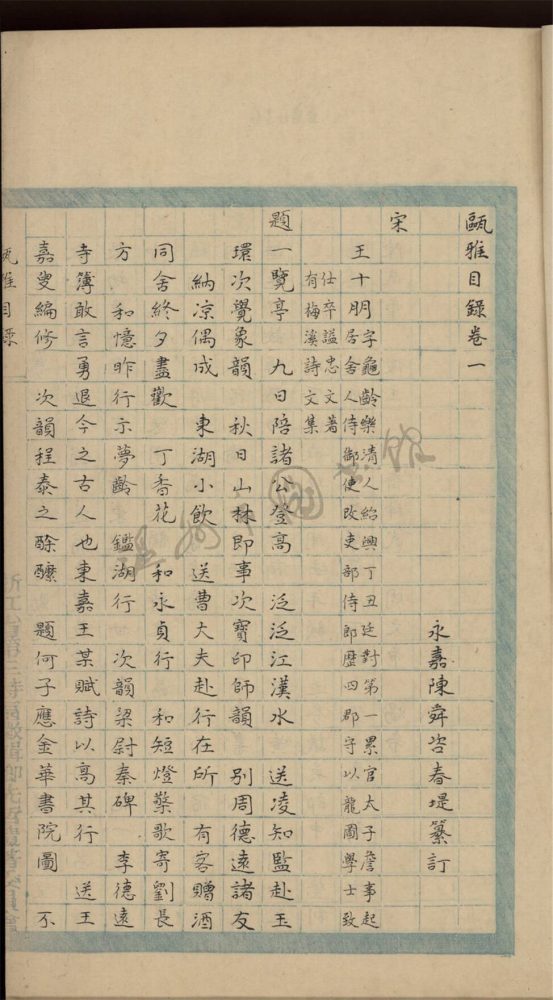 甌雅目錄卷一
永嘉陳舜咨春堤纂訂
宋
王十朋字龜齡樂清人紹興丁丑廷對第一累官太子詹事起
居舍人侍御使改吏部侍郎歷四郡守以龍圖學士致
仕卒諡忠文著
有梅溪詩文集
題一覽亭 九日陪諸公登高 泛泛江漢水 送凌知監赴玉
環次覺象韻 秋日山林即事次寶印師韻 別周德遠諸友
納凉偶成 東湖小飲 送曹大夫赴行在所 有客贈酒
同舍終夕盡歡 丁香花 和永貞行 和短燈檠歌寄劉長
方 和憶昨行示夢齡 鑑湖行 次韻梁尉秦碑 李德遠
寺簿敢言勇退今之古人也東嘉王某賦詩以高其行 送王
嘉叟編修 次韻程泰之酴醿 題何子應金華書院圖 不
甌雅目錄
溫州圖書館